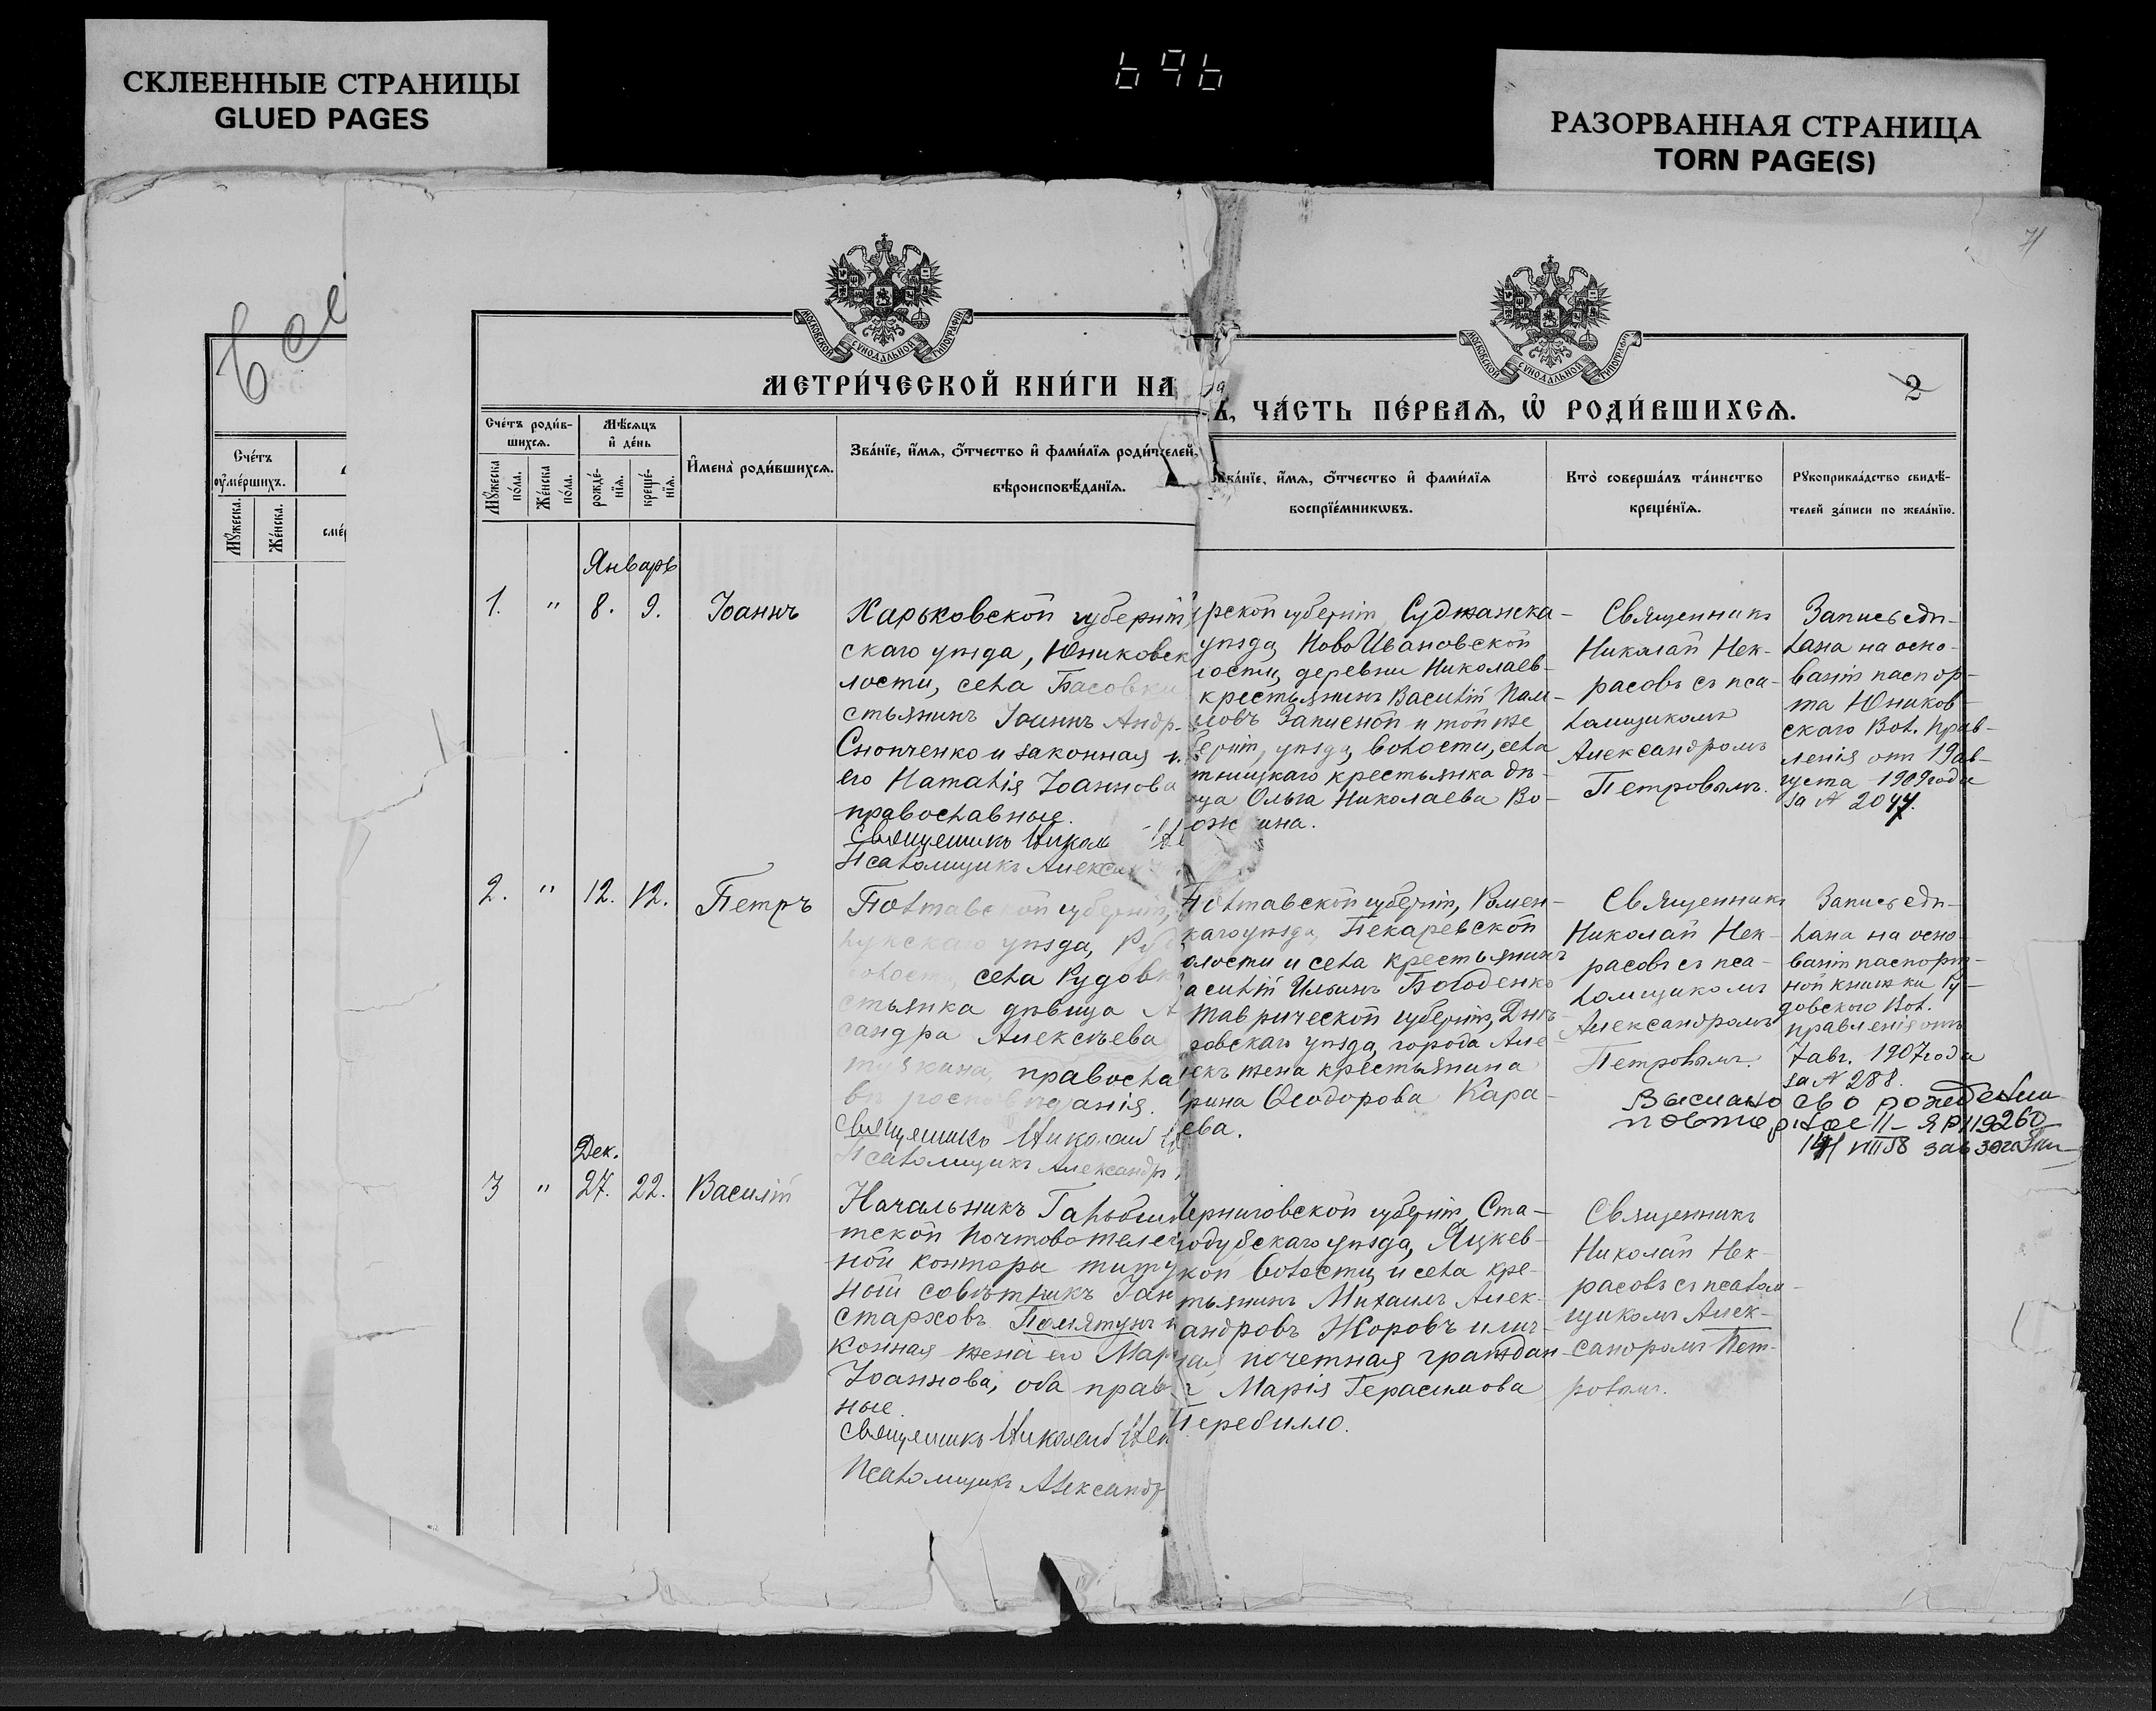 СКЛЕЕННЫЕ СТРАНИЦЫ
GLUED PAGES
696
РАЗОРВАННАЯ СТРАНИЦА
TORN PAGE(S)
71
МОСКОВСКОЙ СѴНОДАЛЬНОЙ ТИПОГРАФІИ
МОСКОВСКОЙ СѴНОДАЛЬНОЙ ТИПОГРАФІИ
МЕТРИ́ЧЕСКОЙ КНИ́ГИ НА
2
ЧА́СТЬ ПЕ́РВАЯ, Ѡ҆ РОДИ́ВШИХСЯ.
Сче́тъ
оу҆ме́ршихъ.
Мꙋ́жеска.
Же́нска.
Сче́тъ роди́в-
шихся.
Мꙋ́жеска по́ла.
Же́нска по́ла.
Мѣ́сяцъ
и҆ де́нь
рожде́-
нїя.
креще́-
нїя.
И҆мена̀ роди́вшихся.
Зва́нїе, и҆́мя, ѻ҆́тчество и҆ фами́лїя роди́телей,
вѣроисповѣ́данїя.
Зва́нїе, и҆́мя, ѻ҆́тчество и҆ фами́лїя
воспрїе́мникѡвъ.
Кто̀ соверша́лъ та́инство
креще́нїя.
Рꙋкоприкла́дство свидѣ́-
телей за́писи по жела́нїю.
Январь
1. " 8. 9. Іоаннъ
Харьковской губерніи
скаго уѣзда, Юниковск
лости, села Басовки
стьянинъ Іоаннъ Андр
Снопченко и законная
его Наталія Іоаннова
православные.
Священникъ Никол
Псаломщикъ Алекса
рской губерніи, Суджанска-
уѣзда, Ново Ивановской
лости, деревни Николаев-
крестьянинъ Василій Пам-
и той же
берніи, уѣзда, волости, села
тницкаго крестьянка дѣ-
ица Ольга Николаева Во-
ож ина.
Священникъ
Николай Нек-
расовъ съ пса-
ломщикомъ
Александромъ
Петровымъ.
Запись сдѣ-
лана на осно-
ваніи паспор-
та Юников-
скаго Вол. Прав-
ленія отъ 19 ав-
густа 1909 года
за № 2077.
2. " 12. 12. Петръ
Полтавской губерніи,
уѣзда,
села Рудовк
стьянка дѣвица
сандра Алексѣева
правосла
Священникъ Николай
Псаломщикъ Александръ
Полтавской губерніи, Ромен-
каго уѣзда, Пекаревской
олости и села крестьянинъ
асилій Ильинъ Бологденко
Таврической губерніи, Днѣ-
ровскаго уѣзда, города Але-
екъ жена крестьянина
рина Ѳеодорова Кара-
ева.
Священникъ
Николай Нек-
расовъ съ пса-
ломщикомъ
Александромъ
Петровымъ.
Запись сдѣ-
лана на осно-
ваніи паспорт-
ной книжки Ру-
довскаго Вол.
правленія отъ
7 авг. 1907 года
за № 288.
Выслано св о рождении
повторное II-ЯР 119260
VIII 58
Дек.
3 " 27. 22. Василій
Начальникъ
тской почтово телег
ной конторы титу
ный совѣтникъ
старховъ
конная жена его Мар
Іоаннова, оба прав
ные.
Священникъ Николай Нек
Псаломщикъ Александр
Черниговской губерніи, Ста-
родубскаго уѣзда, Яцкев-
кой волости, и села кре-
тьянинъ Михаилъ Алек-
андровъ Жоровъ и лич-
ная почетная граждан-
Марія Герасимова
Перебилло.
Священникъ
Николай Нек-
расовъ съ псалом-
щикомъ Алек-
сандромъ Пет-
ровымъ.